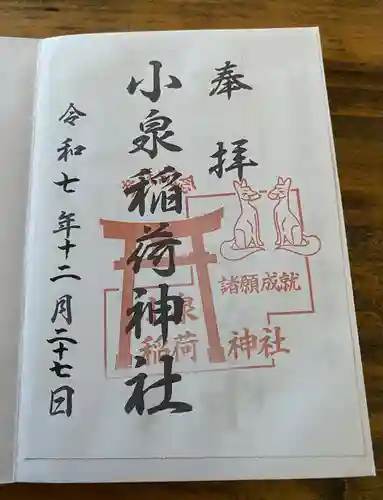 奉拝
小泉稲荷神社
諸願成就
小泉
稲荷神社
令和七年十二月二十七日